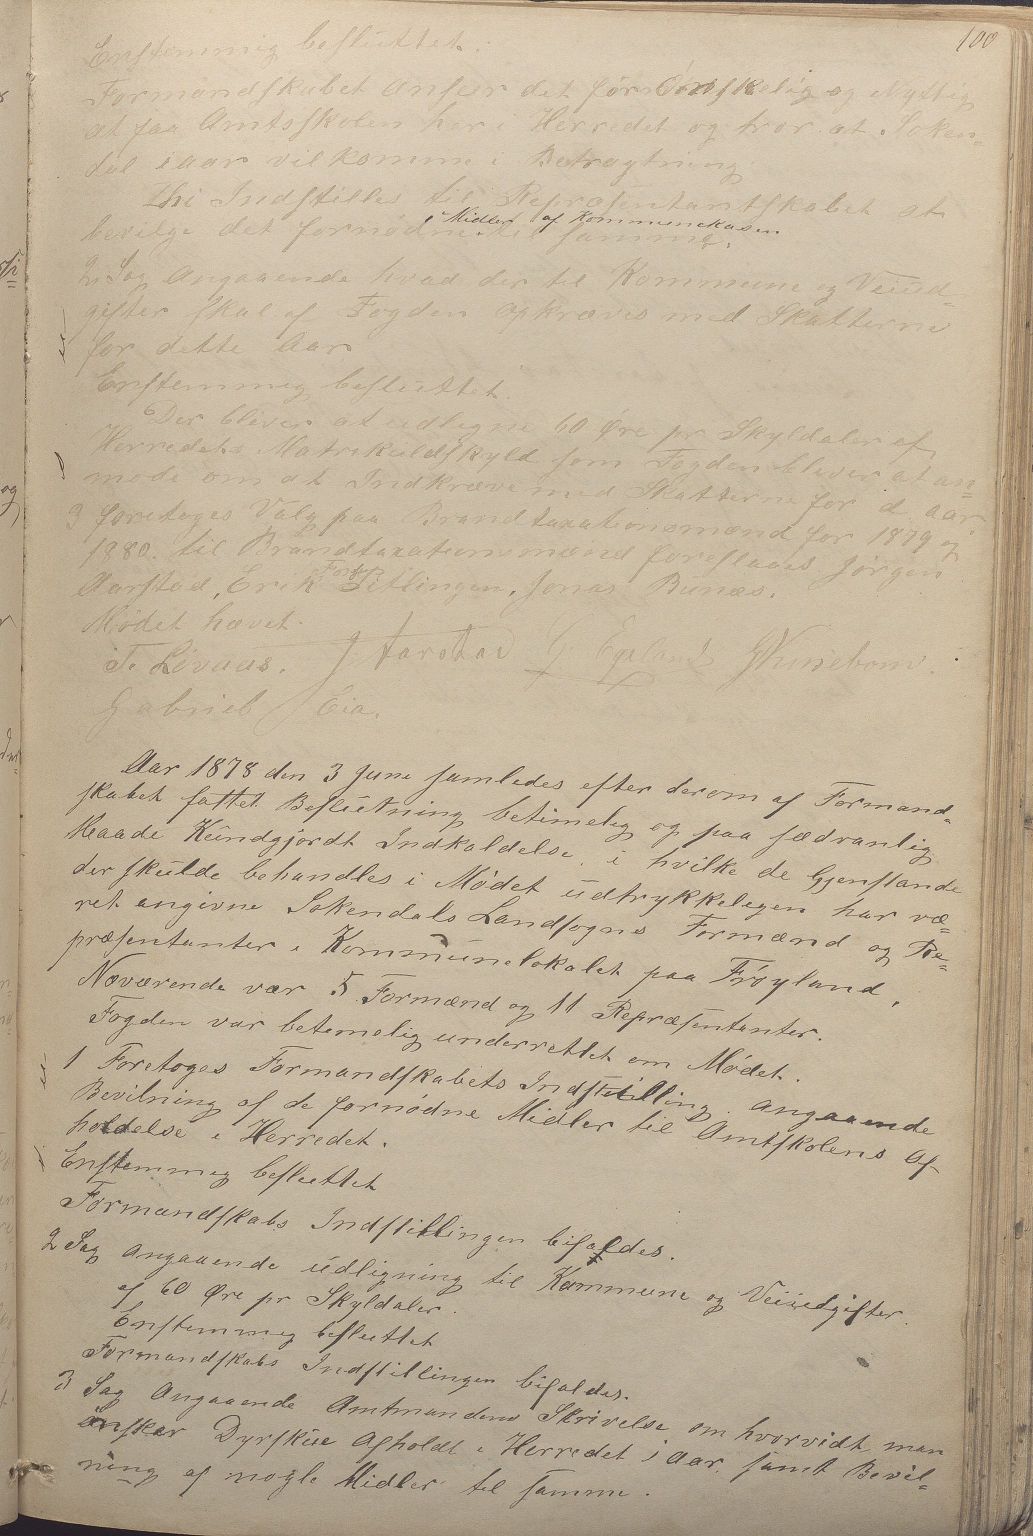 100
Enstemmig besluttet.
Formandskabet anseer det for ønskelig og Nyttig
at faa Amtsskolen her i Herredet og tror at Soken-
dal i aar vil komme i Betragtning.
Thi Indstilles til Repræsentantskabet at
bevilge det fornødne Midler af Kommunekasen til samme.
2 Sag Angaaende hvad der til Kommune og Veiud-
gifter skal af Fogden opkræves med Skatterne
for dette Aar
Enstemmig besluttet.
Der bliver at udlegne 60 Øre pr Skyldaler af
Herredets Matrikulskyld som Fogden bliver at an-
mode om at Indkræve med Skatterne for d. aar.
3 foretoges Valg paa Brandtaxationsmænd for 1879 og
1880. til Brandtaxationsmænd foreslaaes Jørgen
Aarstad, Erik Titlingen, Jonas Bunæs.
Mødet hævet.
T. Løvaas. J Aarstad G. Egeland
Gabriel Eia.
Aar 1878 den 3 June samledes efter derom af Formand-
skabet fattet Beslutning betimelig og paa sædvanlig
Maade Kundgjordt Indkaldelse, i hvilke de Gjenstande
der skulde behandles i Mødet udtrykkelegen har væ-
ret angivne Sokendals Landsogns Formænd og Re-
præsentanter i Kommunelokalet paa Frøyland.
Nærværende vær 5 Formænd og 11 Repræsentanter.
Fogden var betemelig underrettet om Mødet.
1 Foretoges Formandskabets Indstilling angaaende
Bevilning af de fornødne Midler til Amtskolens Af-
holdelse i Herredet.
Enstemmeg besluttet
Formandskabs Indstillingen bifaldes.
2 Sag angaaende udligning til Kommune og Veiudgifter.
af 60 Øre pr Skyldaler.
Enstemmeg besluttet
Formandskabs Indstillingen bifaldes.
3 Sag Angaaende Amtmandens Skrivelse om hvorvidt man
ønsker Dyrskue Afholdt i Herredet i aar, samt Bevil-
ning af nogle Midler til samme.